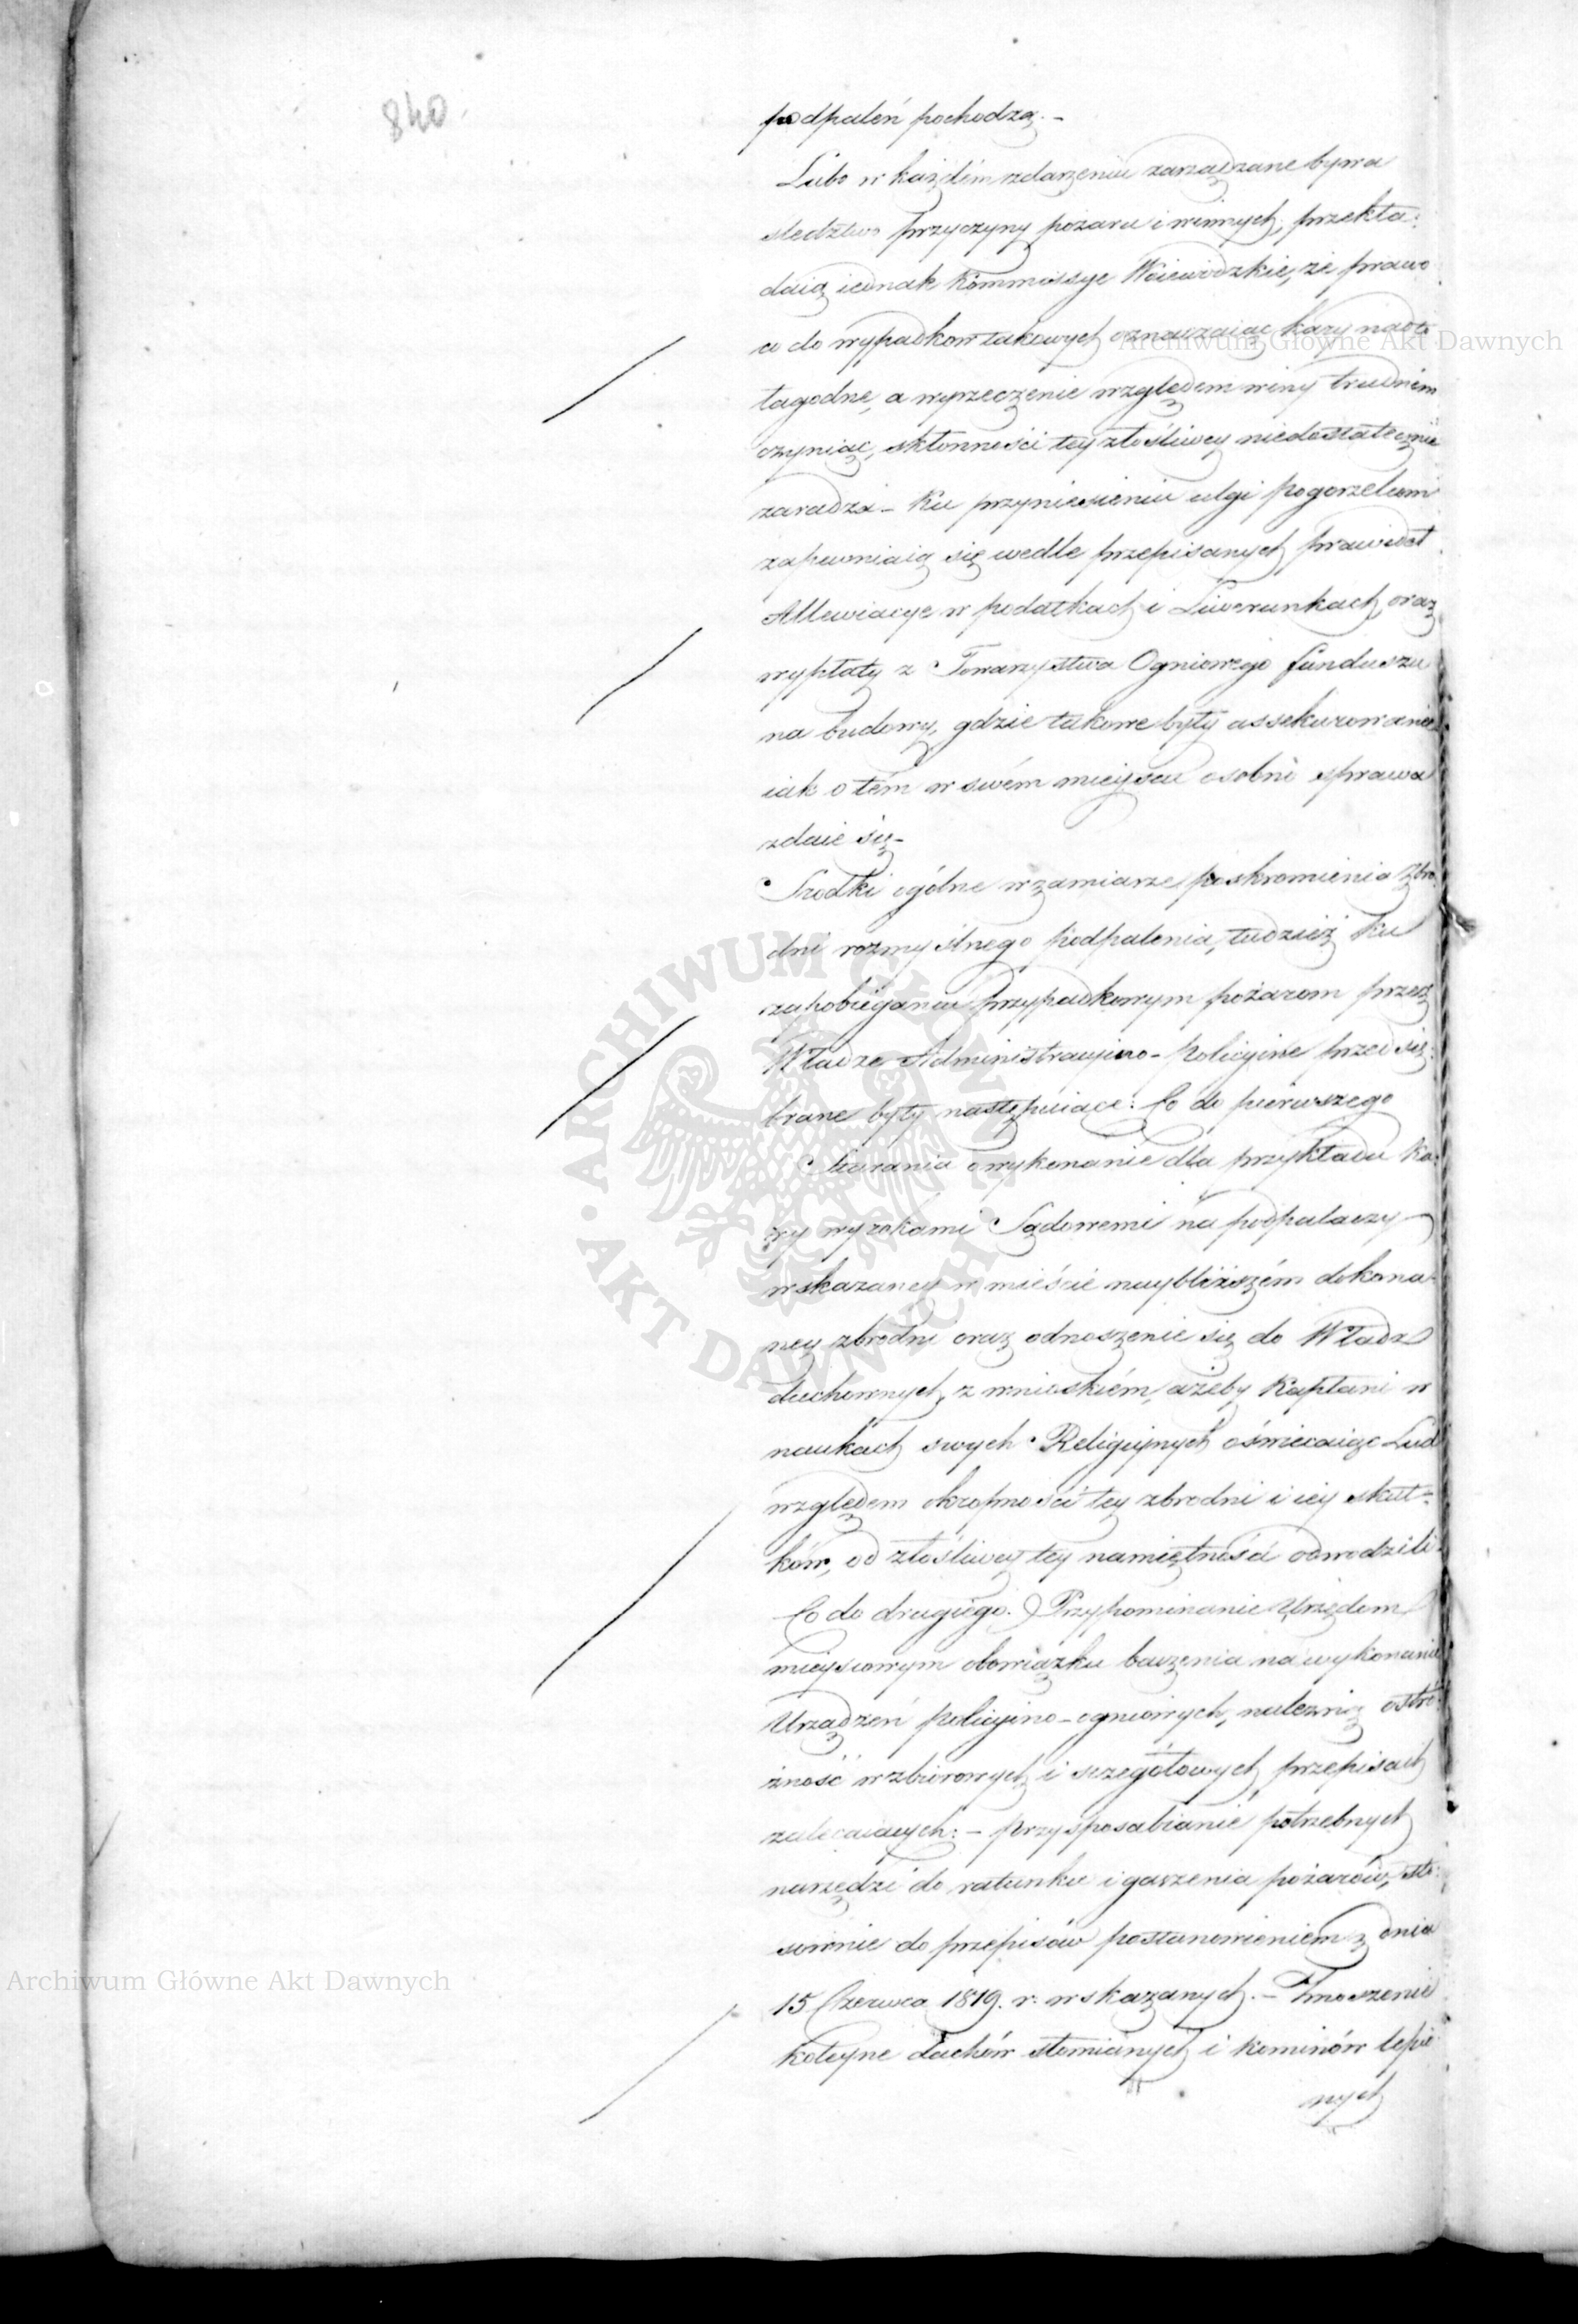 840.
podpaleń pochodzą. –
Lubo w każdém zdarzeniu zarządzane bywa
sledztwo przyczyny pożaru i winnych, przekła:
daią iednak Kommissye Woiewódzkie, że prawo
co do wypadkow takowych oznaczaiąc kary nadto
łagodne, a wyrzeczenie względem winy trudném
czyniąc, skłonności tey złośliwey niedostatecznie
zaradza – Ku przyniesieniu ulgi pogorzelcom
zapewniaią się wedle przepisanych prawideł
Allewiacye w podatkach i Liwerunkach, oraz
wypłaty z Towarzystwa Ogniowego funduszu
na budowy, gdzie takowe były assekurowane
iak o tém w swém mieyscu osobno sprawa
zdaie się –
Srodki ogólne w zamiarze poskromienia zbro:
dni rozmyślnego podpalenia, tudzież ku
zapobieganiu przypadkowym pożarom przez
Władze Administracyino-Policyine przedsię:
brane były następuiące: Co do pierwszego
Starania o wykonanie dla przykładu ka:
ry wyrokami Sądowemi na podpalaczy
wskazaney w mieście naybliższém dokona:
ney zbrodni oraz odnoszenie się do Władz
duchownych z wnioskiém, ażeby Kapłani w
naukach swych Religiynych oświecaiąc Lud
względem okropności tey zbrodni i iéy skut:
ków, od złośliwey tey namiętności odwodzili.
Co do drugiego.) Przypominanie Urzędom
mieyscowym obowiązku baczenia na wykonanie
Urządzeń policyino-ogniowych, należną ostro:
żność w zbiorowych i szczegółowych przepisach
zalecaiących: – przysposabianie potrzebnych
narzędzi do ratunku i gaszenia pożarów, sto:
sownie do przepisów postanowieniem z dnia
15 Czerwca 1819. r: wskazanych. – Znoszenie
koleyne dachów słomianych i kominów lepio
nych
Archiwum Główne Akt Dawnych
Archiwum Główne Akt Dawnych
ARCHIWUM GŁÓWNE • AKT DAWNYCH •